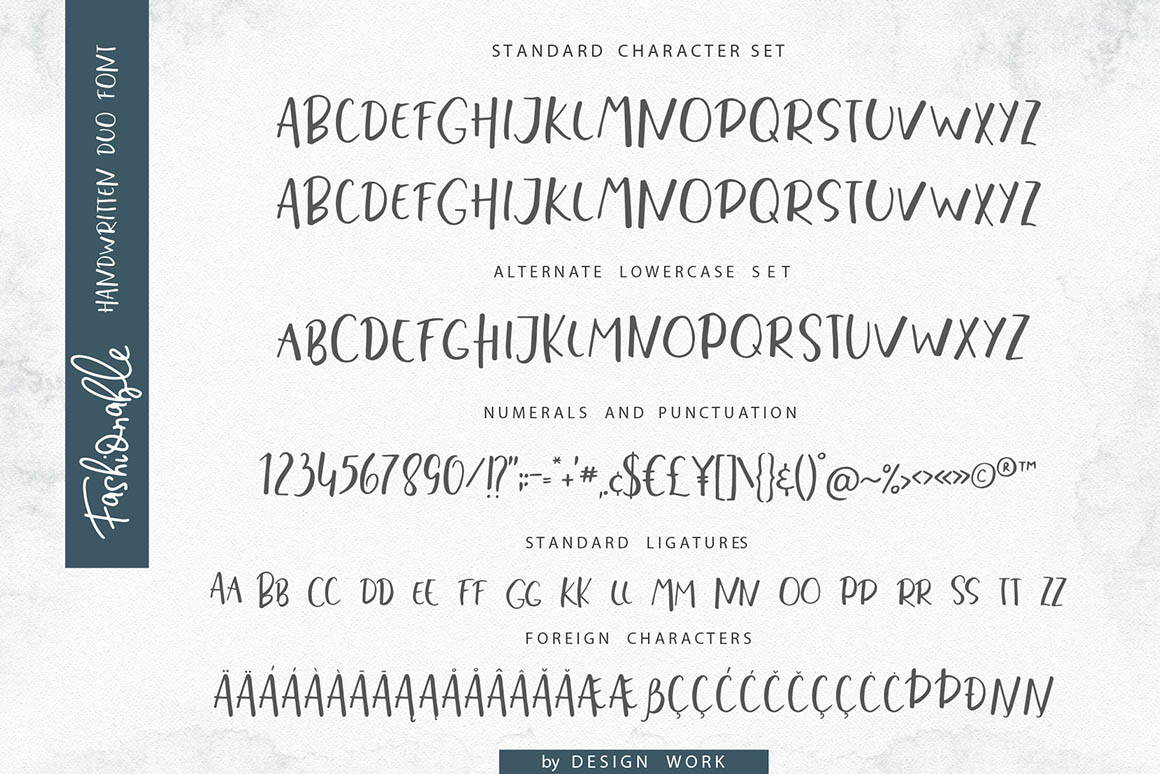 Fashionable HANDWRITTEN DUO FONT
STANDARD CHARACTER SET
ABCDEFGHIJKLMNOPQRSTUVWXYZ
ABCDEFGHIJKLMNOPQRSTUVWXYZ
ALTERNATE LOWERCASE SET
ABCDEFGHIJKLMNOPQRSTUVWXYZ
NUMERALS AND PUNCTUATION
1234567890/!?";:-–=*+'#,.¢$€£¥[]\{}&()°@~%><>«»©®™
STANDARD LIGATURES
AA BB CC DD EE FF GG KK LL MM NN OO PP RR SS TT ZZ
FOREIGN CHARACTERS
ÄÄÁÁÀÀĀĀĄĄÅÅÂÂÃÃĂĂÆÆßÇÇĆĆČČÇÇĊĊÞÞÐŊŊ
by DESIGN WORK